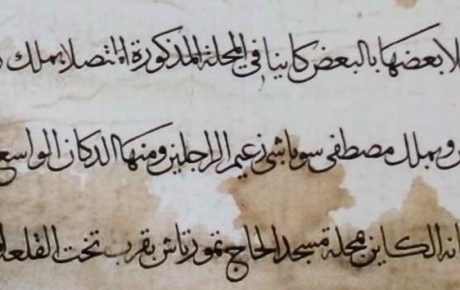 لا بعضها بالبعض كاينا في المحلة المذكورة المتصلا بملك
وبملك مصطفى سوباشي زعيم الراجلين ومنها الدكان الواسع
انه الكاين بمحلة مسجد الحاج تمورتاش بقرب تحت القلعه